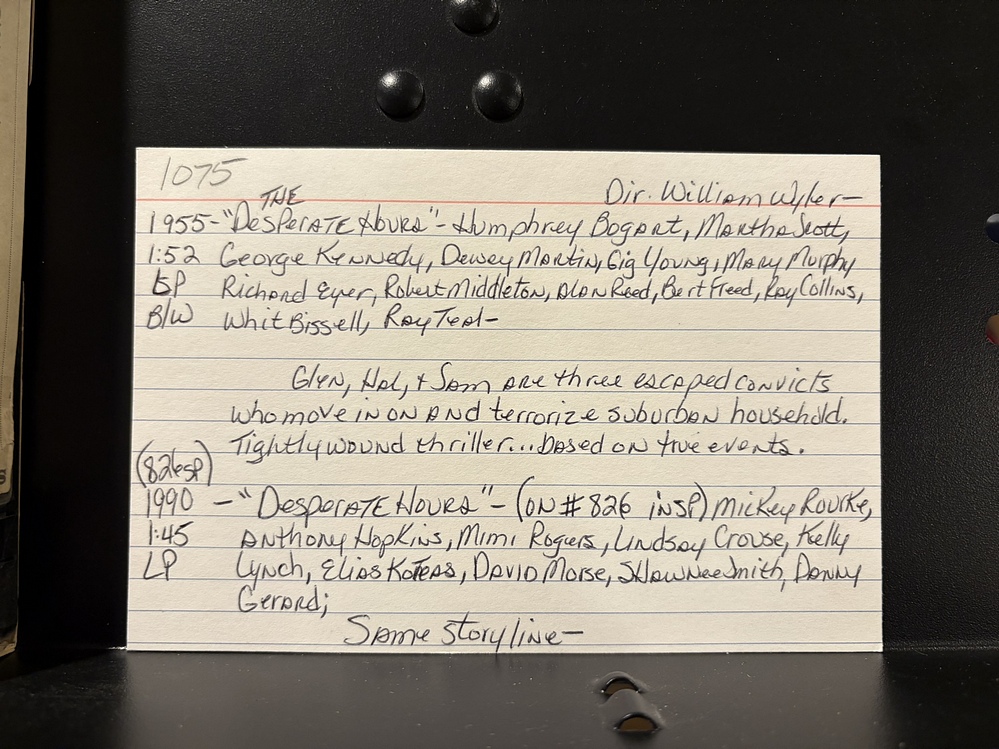 1075
THE Dir. William Wyler-
1955-"Desperate Hours"- Humphrey Bogart, Martha Scott,
1:52 George Kennedy, Dewey Martin, Gig Young, Mary Murphy
SP Richard Eyer, Robert Middleton, Alan Reed, Bert Freed, Ray Collins,
B/W Whit Bissell, Ray Teal-
Glen, Hal, + Sam are three escaped convicts
who move in on and terrorize suburban household.
Tightly wound thriller...based on true events.
(826sp)
1990 - "Desperate Hours" - (on #826 in SP) Mickey Rourke,
1:45 Anthony Hopkins, Mimi Rogers, Lindsay Crouse, Kelly
LP Lynch, Elias Koteas, David Morse, Shawnee Smith, Danny
Gerard;
Same storyline-